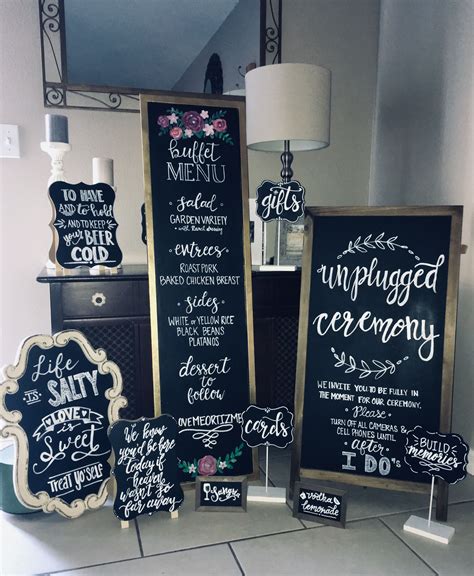 TO HAVE
and to hold
AND TO KEEP
your BEER
COLD
buffet
MENU
salad
GARDEN VARIETY
with Ranch Dressing
entrees
ROAST PORK
BAKED CHICKEN BREAST
sides
WHITE or YELLOW RICE
BLACK BEANS
PLATANOS
dessert
to
follow
gifts
unplugged
ceremony
WE INVITE YOU TO BE FULLY IN
THE MOMENT FOR OUR CEREMONY.
Please
TURN OFF ALL CAMERAS &
CELL PHONES UNTIL
after
I DO's
Life
is
SALTY
LOVE is
Sweet
Treat Yo'self
We know
you'd be here
today if
heaven
wasn't so
far away
cards
vodka
lemonade
BUILD
memories